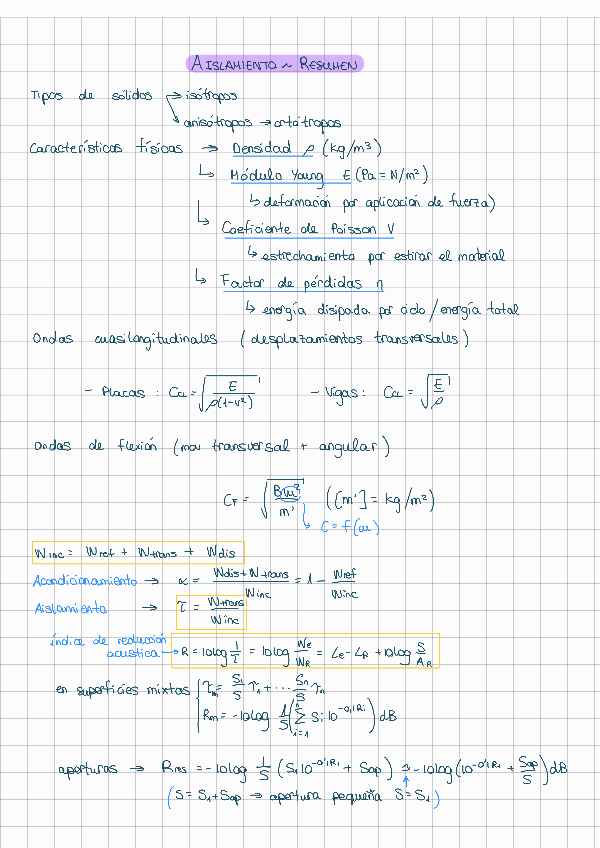 AISLAMIENTO ~ RESUMEN
Tipos de sólidos → isótropos
↘ anisótropos → ortótropos
Características físicas → Densidad ρ (kg/m³)
↳ Módulo Young E (Pa = N/m²)
↳ deformación por aplicación de fuerza)
↳ Coeficiente de Poisson V
↳ estrechamiento por estirar el material
↳ Factor de pérdidas η
↳ energía disipada por ciclo / energía total
Ondas cuasilongitudinales ( desplazamientos transversales )
- Placas : C_CL = √(E / ρ(1-V²)) - Vigas : C_CL = √(E / ρ)
Ondas de flexión (mov transversal + angular)
C_F = ⁴√(Bω² / m') ([m'] = kg/m²)
↳ C = f(ω)
W_inc = W_ref + W_trans + W_dis
Acondicionamiento → α = (W_dis + W_trans) / W_inc = 1 - W_ref / W_inc
Aislamiento → τ = W_trans / W_inc
índice de reducción
acústica → R = 10log 1/τ = 10log W_E/W_R = L_E - L_R + 10log S/A_R
en superficies mixtas { τ_m = S_1/S τ_1 + ... S_n/S τ_n
R_m = -10log 1/S (Σ_{i=1}^{n} S_i 10^{-0,1R_i}) dB
aperturas → R_res = -10log 1/S (S_1 10^{-0'1R_1} + S_ap) ≈ -10log (10^{-0'1R_1} + S_ap/S) dB
(S = S_1 + S_ap → apertura pequeña S = S_1)